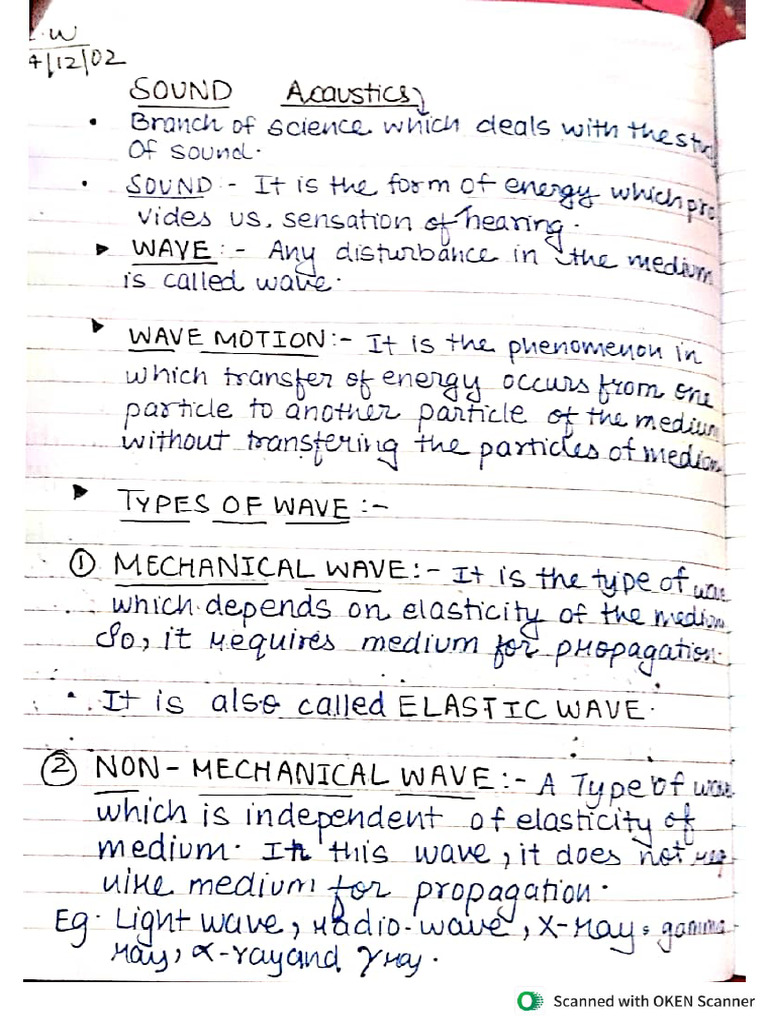 .W
4/12/02
SOUND Acaustics
• Branch of science which deals with the stu
Of sound.
• SOUND :- It is the form of energy which pro
vides us. sensation of hearing.
➤ WAVE :- Any disturbance in the medium
is called wave.
➤ WAVE MOTION :- It is the phenomenon in
which transfer of energy occurs from one
particle to another particle of the medium
without transfering the particles of medium
➤ TYPES OF WAVE :-
① MECHANICAL WAVE :- It is the type of wave
which depends on elasticity of the medium
So, it requires medium for propagation.
• It is also called ELASTIC WAVE.
② NON-MECHANICAL WAVE :- A Type of wave
which is independent of elasticity of
medium. In this wave, it does not req
uire medium for propagation.
Eg. Light wave, radio-wave, X-ray, gamma
ray, α-ray and γ ray.
Scanned with OKEN Scanner